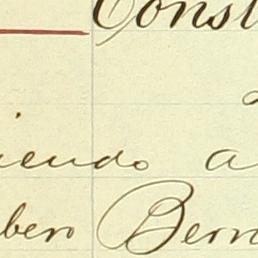 Const
iendo a
ben Bern